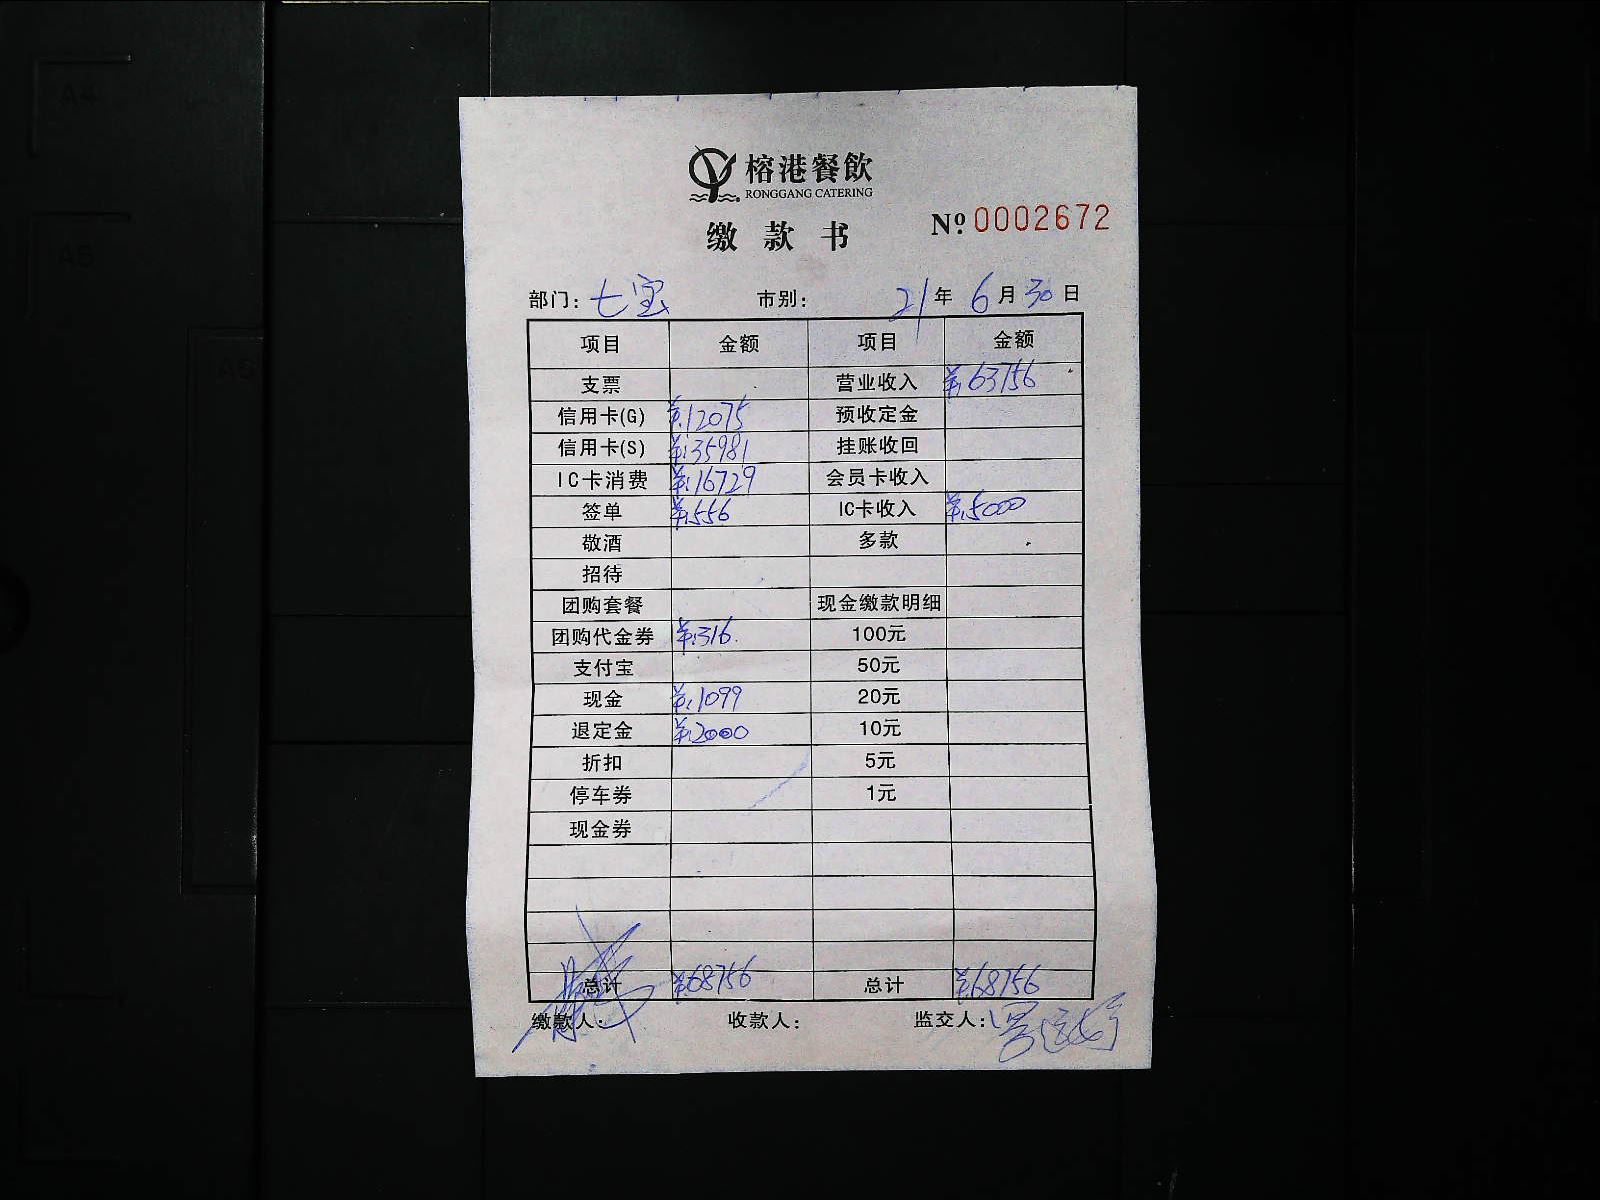 榕港餐飲
RONGGANG CATERING
缴款书
Nº 0002672
部门：七宝 市别： 21年 6月30日
项目 金额 项目 金额
支票 营业收入 ¥:63756
信用卡(G) ¥:12075 预收定金
信用卡(S) ¥:35981 挂账收回
IC卡消费 ¥:16729 会员卡收入
签单 ¥:556 IC卡收入 ¥:5000
敬酒 多款
招待
团购套餐 现金缴款明细
团购代金券 ¥:316. 100元
支付宝 50元
现金 ¥:1099 20元
退定金 ¥:2000 10元
折扣 5元
停车券 1元
现金券
总计 ¥:68756 总计 ¥:68756
缴款人： 收款人： 监交人：
A4
A5
A6